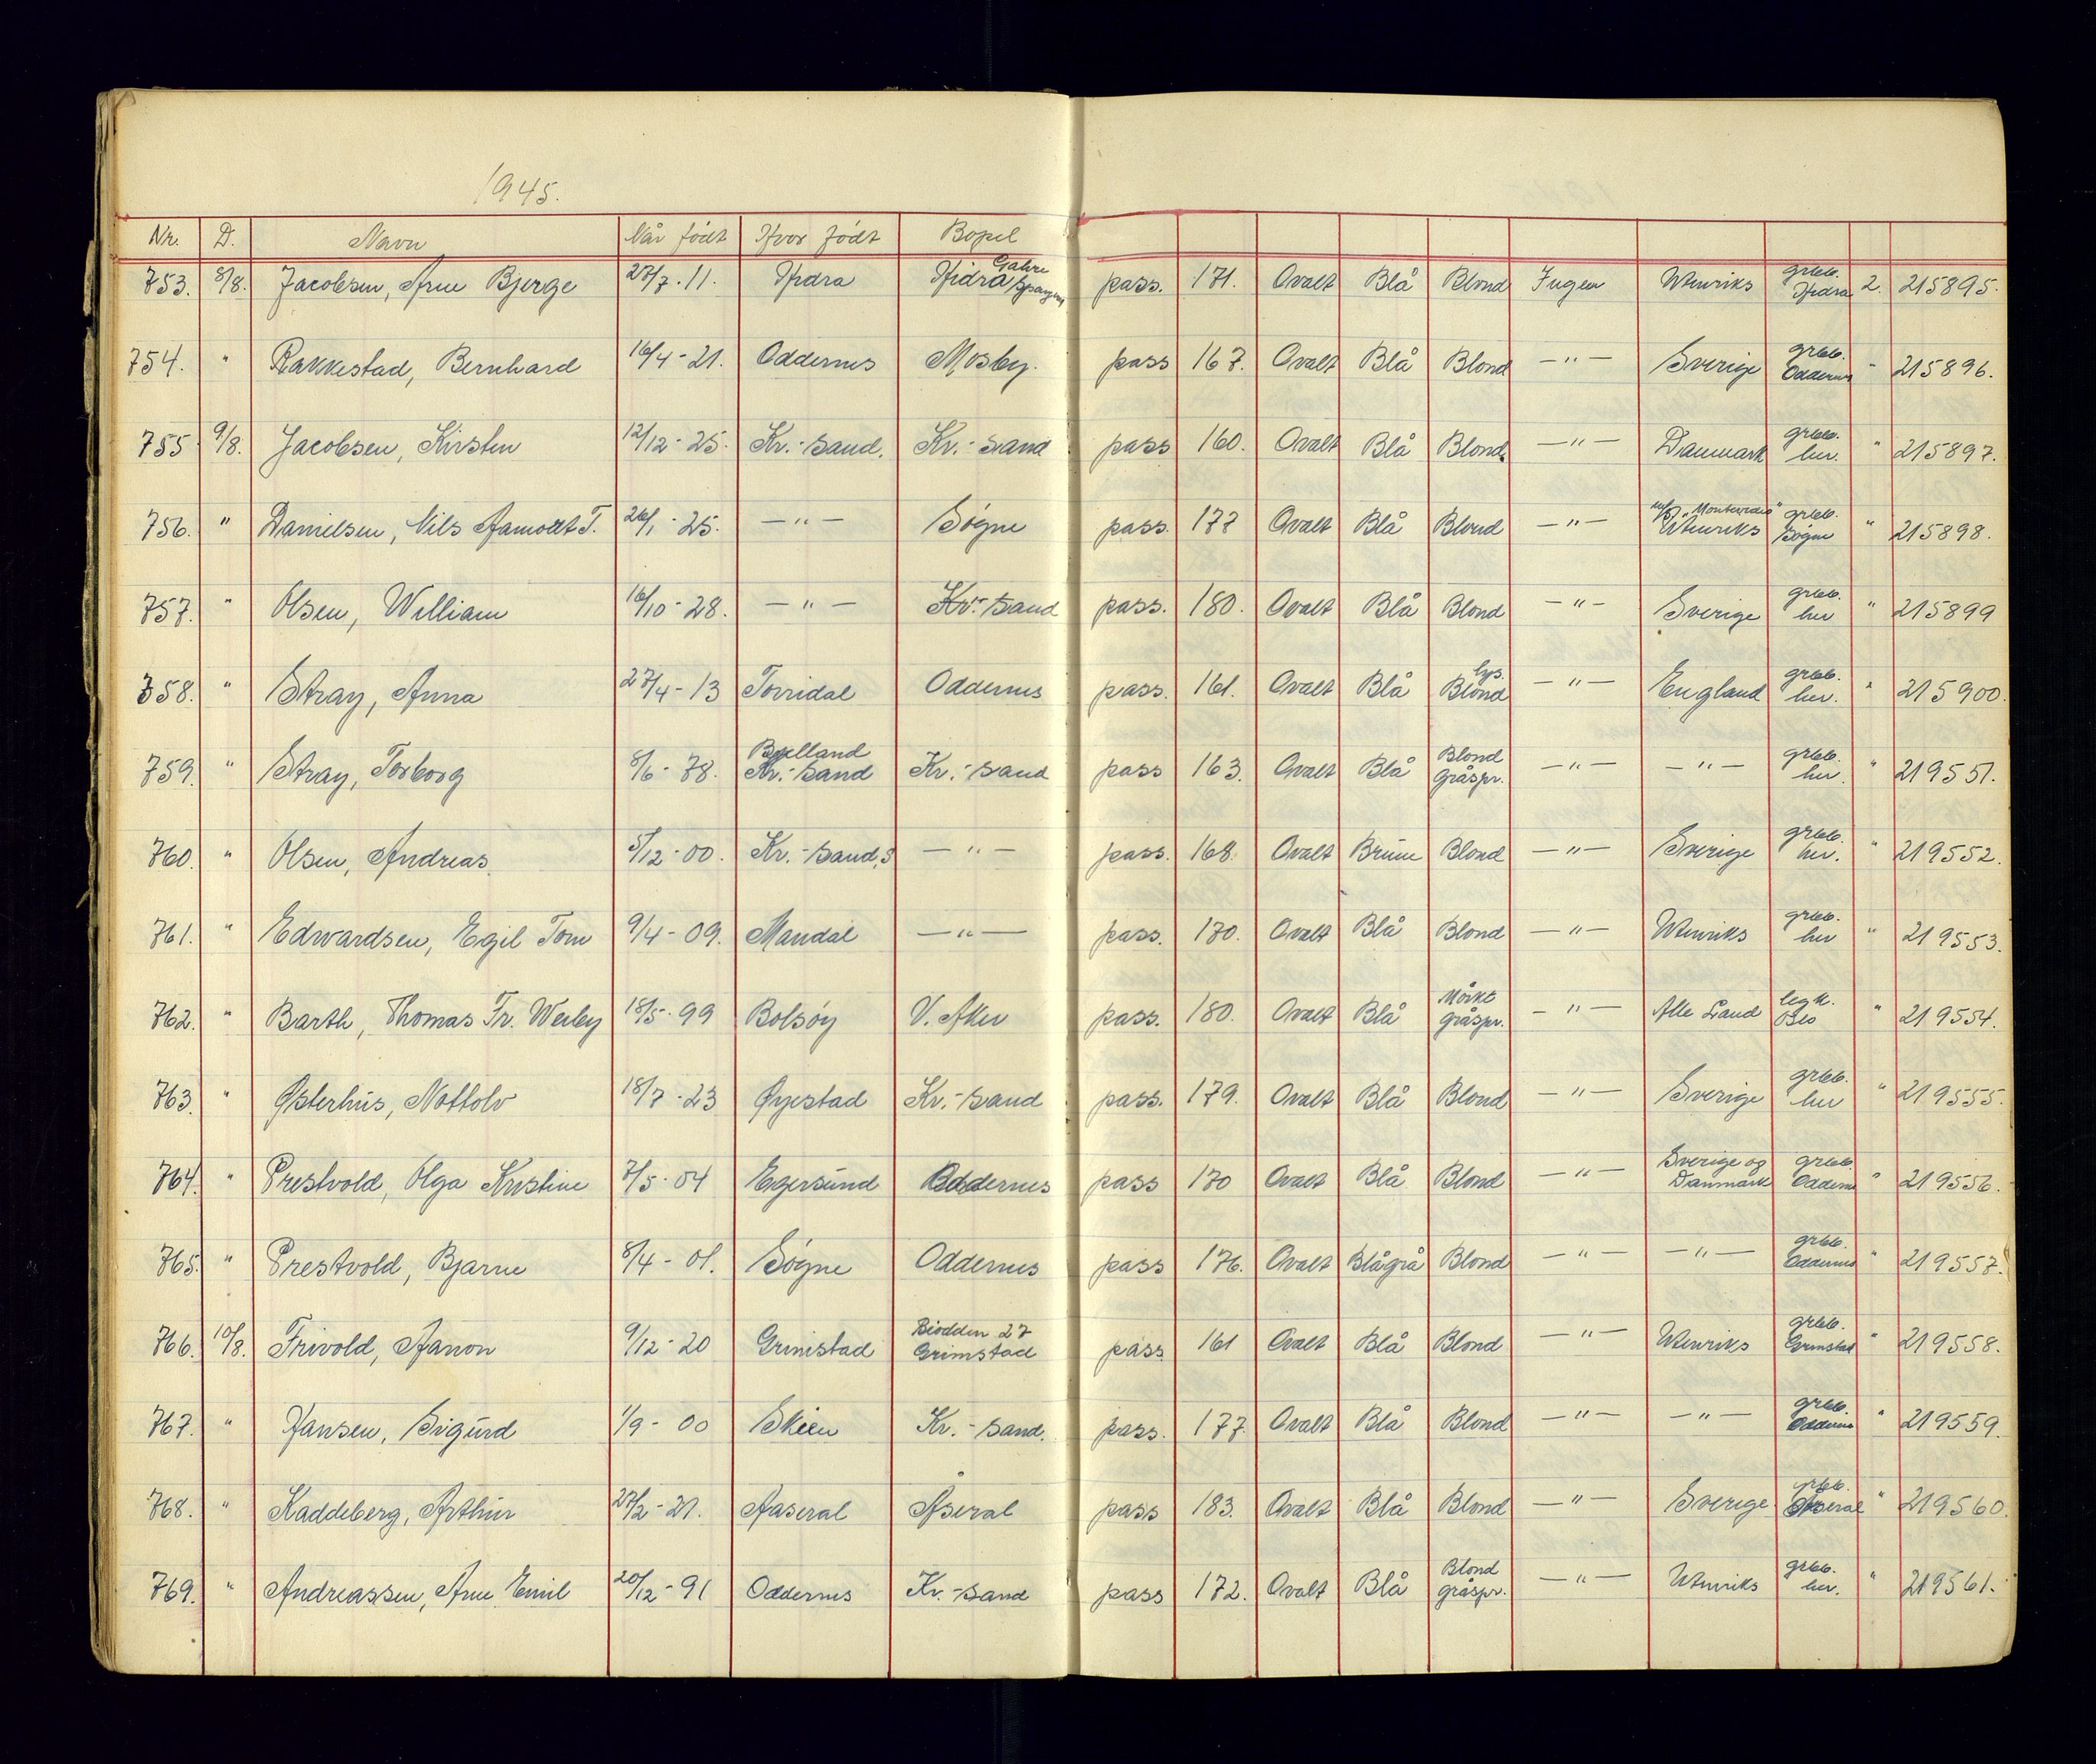 1945.
Nr. D. Navn Når født Hvor født Bopel
753. 8/8. Jacobsen, Arne Bjerge 27/7-11. Hidra Hidra pass. 171. Ovalt Blå Blond Ingen Utenriks grbb. Hidra 2. 215895.
754. " Rakkestad, Bernhard 16/4-21. Oddernes Mosby. pass 167. Ovalt Blå Blond —"— Sverige grbb. Oddernes " 215896.
755 9/8. Jacobsen, Kirsten 12/12-25. Kr.-sand. Kr.-sand pass 160. Ovalt Blå Blond. —"— Danmark grbb. her. " 215897.
756. " Danielsen, Nils Aamodt T. 26/1-25. —"— Søgne pass. 177 Ovalt Blå Blond —"— "Montevideo" Utenriks grbb. Søgne " 215898.
757. " Olsen, William 16/10-28. —"— Kr.-sand pass. 180. Ovalt Blå Blond —"— Sverige grbb. her " 215899
758. " Stray, Anna 27/4-13 Torridal Oddernes pass. 161. Ovalt Blå lys. Blond —"— England grbb. her. " 215900.
759. " Stray, Torborg 8/6-78. Bjelland Kr.-sand Kr.-sand pass 163. Ovalt Blå Blond gråspr. —"— —"— grbb. her. " 219551.
760. " Olsen, Andreas. 5/12-00. Kr.-sand,S —"— pass. 168. Ovalt Brune Blond —"— Sverige grbb. her. " 219552.
761. " Edwardsen, Egil Tom 9/4-09. Mandal —"— pass. 170. Ovalt Blå Blond —"— Utenriks grbb. her " 219553.
762. " Barth, Thomas Fr. Werby 18/5-99 Bolsøy V. Aker pass. 180. Ovalt Blå Mørkt gråspr. —"— Alle Land legk. Oslo " 219554.
763. " Østerhus, Nottolv 18/7-23 Øyestad Kr.-sand pass. 179. Ovalt Blå Blond —"— Sverige grbb. her " 219555.
764. " Prestvold, Olga Kristine 7/5-04 Egersund Oddernes pass 170 Ovalt Blå Blond —"— Sverige og Danmark grbb. Oddernes " 219556.
765. " Prestvold, Bjarne 8/4-01. Søgne Oddernes pass 176. Ovalt Blågrå Blond —"— —"— grbb. Oddernes " 219557.
766. 10/8. Frivold, Aanon 9/12-20 Grimstad Biodden 27 Grimstad pass 161 Ovalt Blå Blond —"— Utenriks grbb. Grimstad " 219558.
767. " Hansen, Sigurd 1/9-00 Skien Kr.-sand. pass. 177. Ovalt Blå Blond —"— —"— grbb. Oddernes " 219559.
768. " Kaddeberg, Arthur 27/2-21. Aaseral Åseral pass 183. Ovalt Blå Blond —"— Sverige grbb. Åseral " 219560.
769. " Andreassen, Arne Emil 20/12-91 Oddernes Kr.-sand pass 172. Ovalt Blå Blond gråspr. —"— Utenriks grbb. her. " 219561.